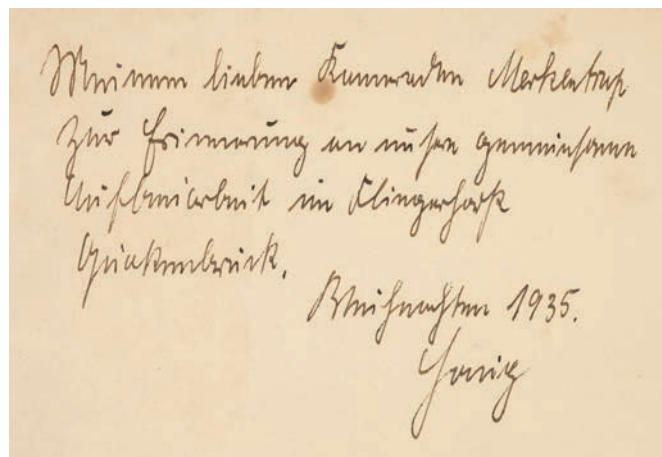 Meinem lieben Kameraden Merkentrup
zur Erinnerung an unsere gemeinsame
Aufbauarbeit im Fliegerhorst
Quakenbrück.
Weihnachten 1935.